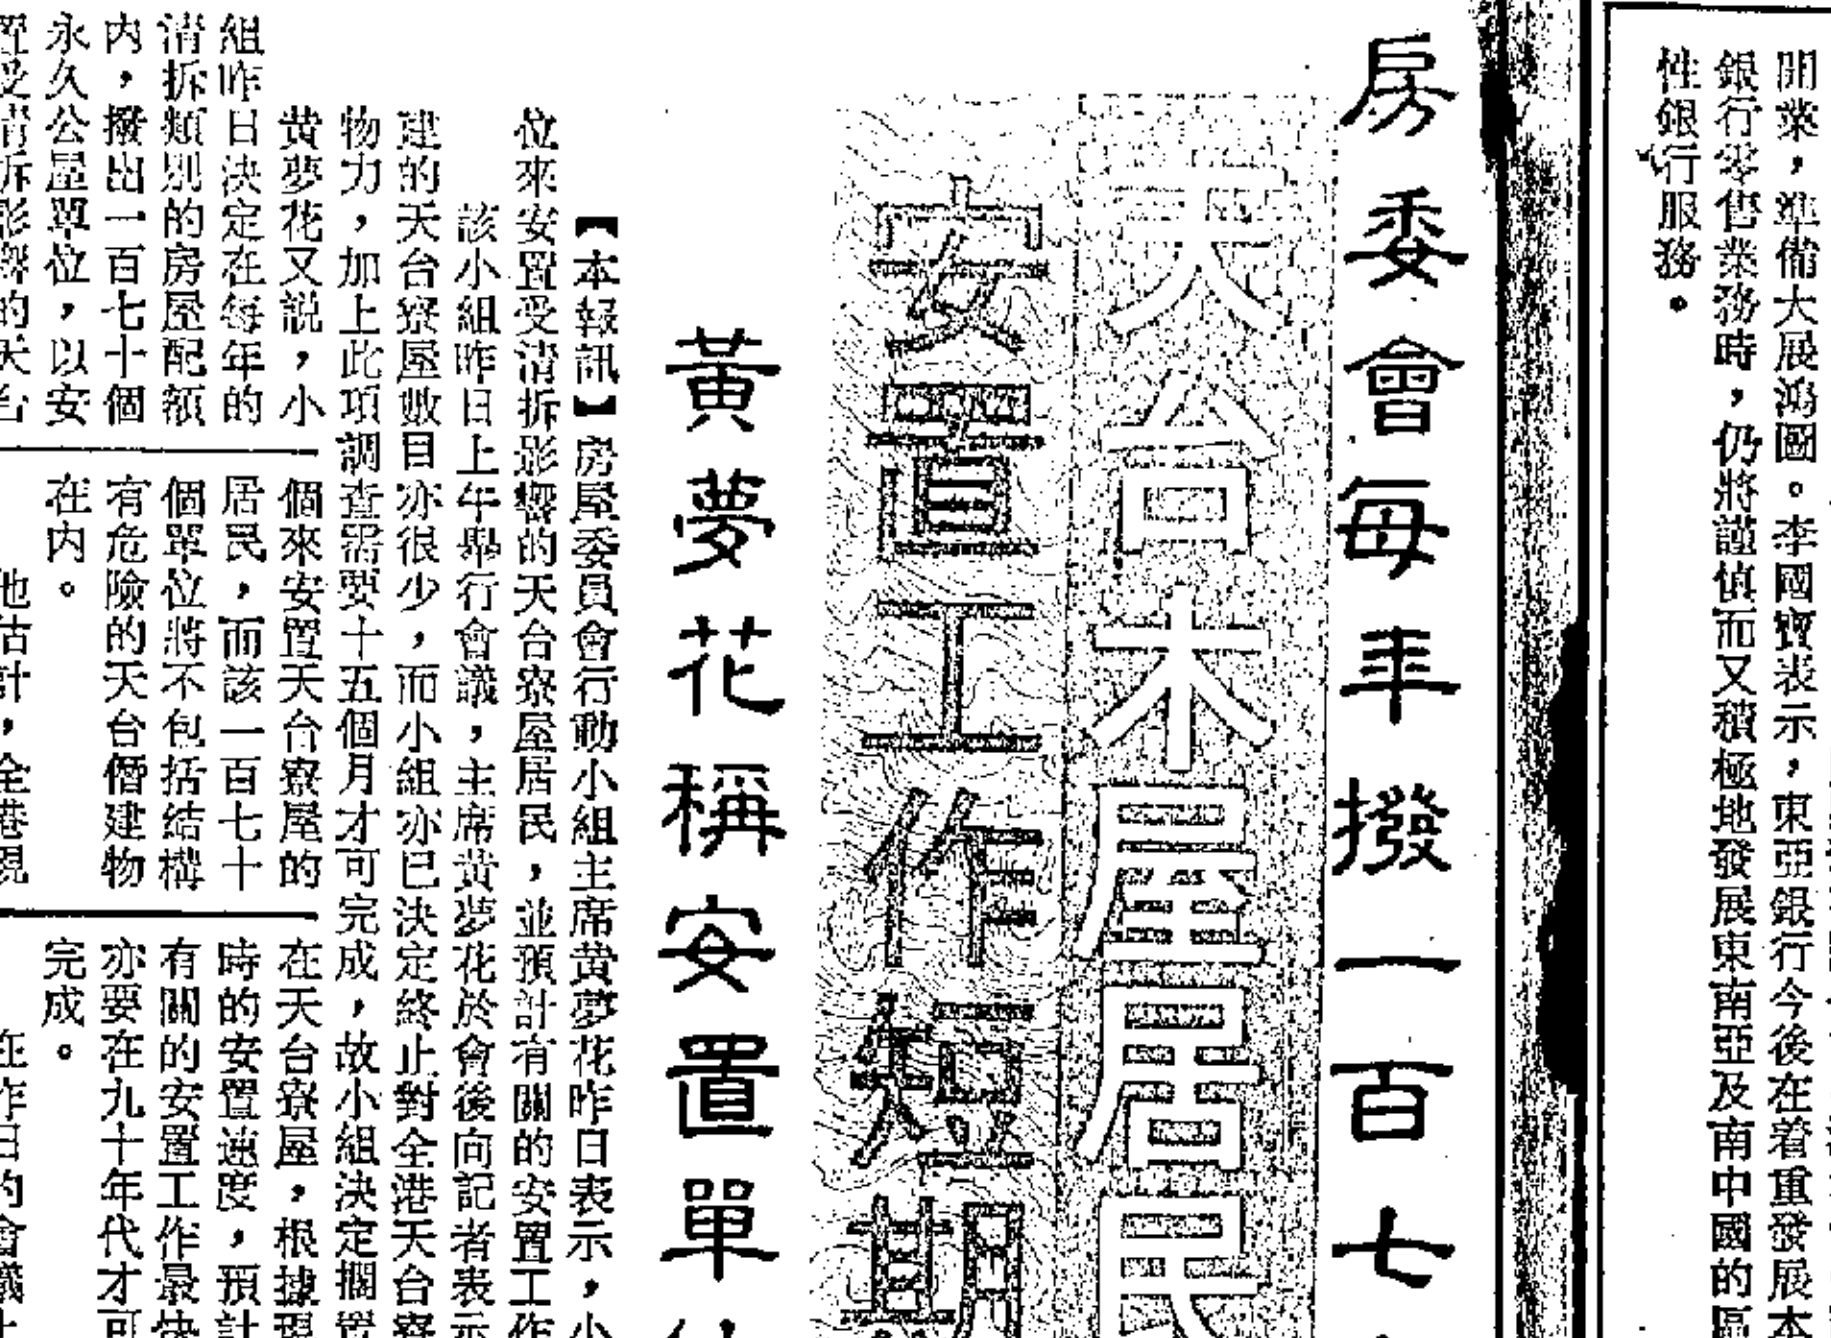 開業，準備大展鴻圖。李國寶表示，東亞銀行今後在着重發展本
銀行零售業務時，仍將謹慎而又積極地發展東南亞及南中國的區
性銀行服務。
房委會每年撥一百七
天台木屋居民
安置工作短期
黃夢花稱安置單
【本報訊】房屋委員會行動小組主席黃夢花昨日表示，小
位來安置受清拆影響的天台寮屋居民，並預計有關的安置工作
該小組昨日上午舉行會議，主席黃夢花於會後向記者表示
建的天台寮屋數目亦很少，而小組亦已決定終止對全港天台寮
物力，加上此項調查需要十五個月才可完成，故小組決定擱置
黃夢花又説，小
組昨日決定在每年的
清拆類別的房屋配額
内，撥出一百七十個
永久公屋單位，以安
置受清拆影響的天台
個來安置天台寮屋的
居民，而該一百七十
個單位將不包括結構
有危險的天台僭建物
在内。
他估計，全港現
在天台寮屋，根據現
時的安置速度，預計
有關的安置工作最快
亦要在九十年代才可
完成。
在昨日的會議上